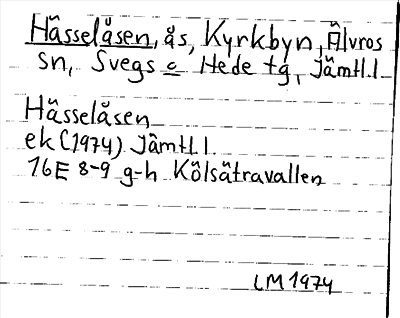 Hässelåsen, ås, Kyrkbyn, Älvros
sn, Svegs o Hede tg, Jämtl.l
Hässelåsen
ek (1974) Jämtl.l.
16E 8-9 g-h Kölsätravallen
LM 1974